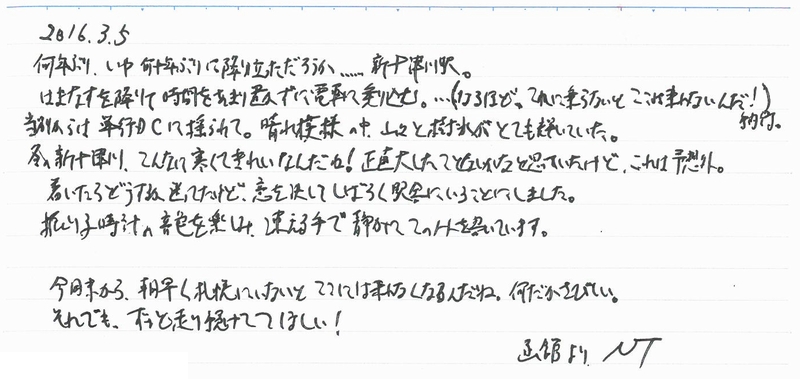 2016.3.5
何年ぶり、いや何十年ぶりに降り立ただろうか……新十津川駅。
はまなすを降りて時間をあまり置かずに電車に乗り込む。…(なるほど。これに乗らないとここに来れないんだ!)納得。
当別からは単行DCに揺られて。晴れ模様の中、山々と樹氷がとても輝いていた。
冬の新十津川、こんなに寒くてきれいなんだね!正直大したことないかなと思っていたけど、これは予想外。
着いたらどうするか迷てたけど、意を決してしばらく駅舎にいることにしました。
振り子時計の音色を楽しみ、凍える手で静かにこのノートを書いています。
今月末から、朝早く札幌にいないとここには来れなくなるんだね。何だかさびしい。
それでも、ずっと走り続けててほしい!
函館より NT